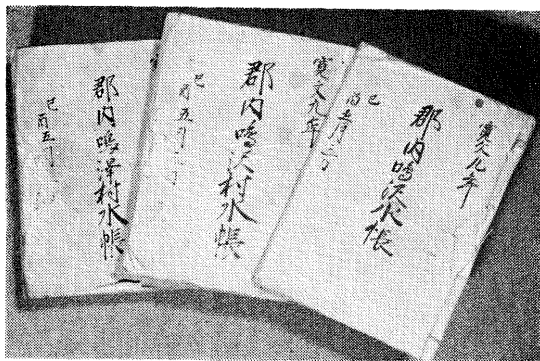 寛文九年
郡内鳴沢水帳
己酉五月
寛文九年
郡内鳴沢村水帳
己酉五月
寛
郡内鳴澤村水帳
己酉五月